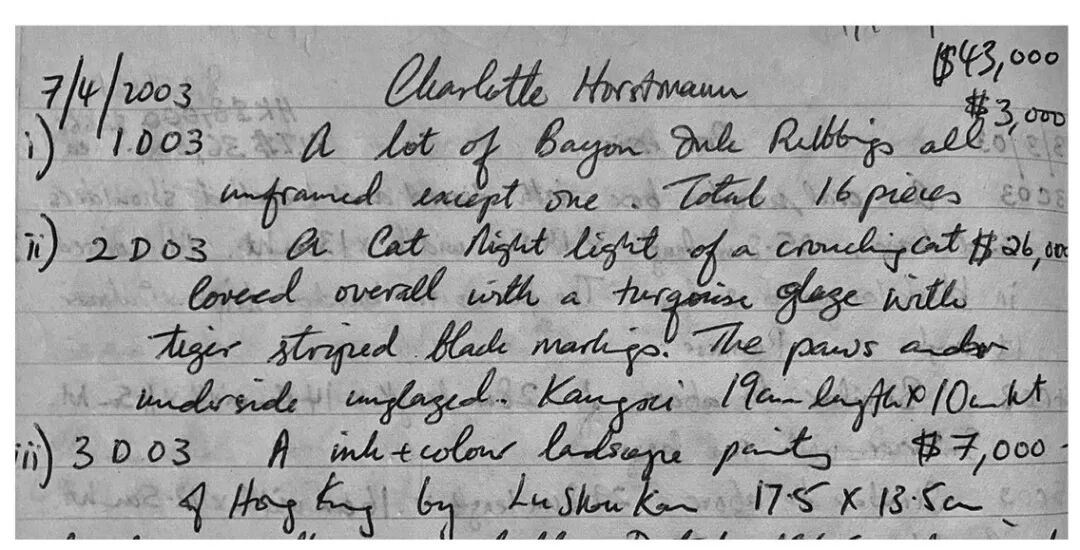 $43,000
7/4/2003 Charlotte Horstmann $3,000
i) 1.D03 A lot of Bayon Ink Rubbings all
unframed except one. Total 16 pieces
ii) 2D03 A Cat Night light of a crouching cat $26,000
covered overall with a turqoise glaze with
tiger striped black markings. The paws and
underside unglazed. Kangxi 19cm length X 10cm ht
iii) 3D03 A ink + colour landscape painting $7,000
of Hong Kong by Lu Shou Kan 17.5 X 13.5cm